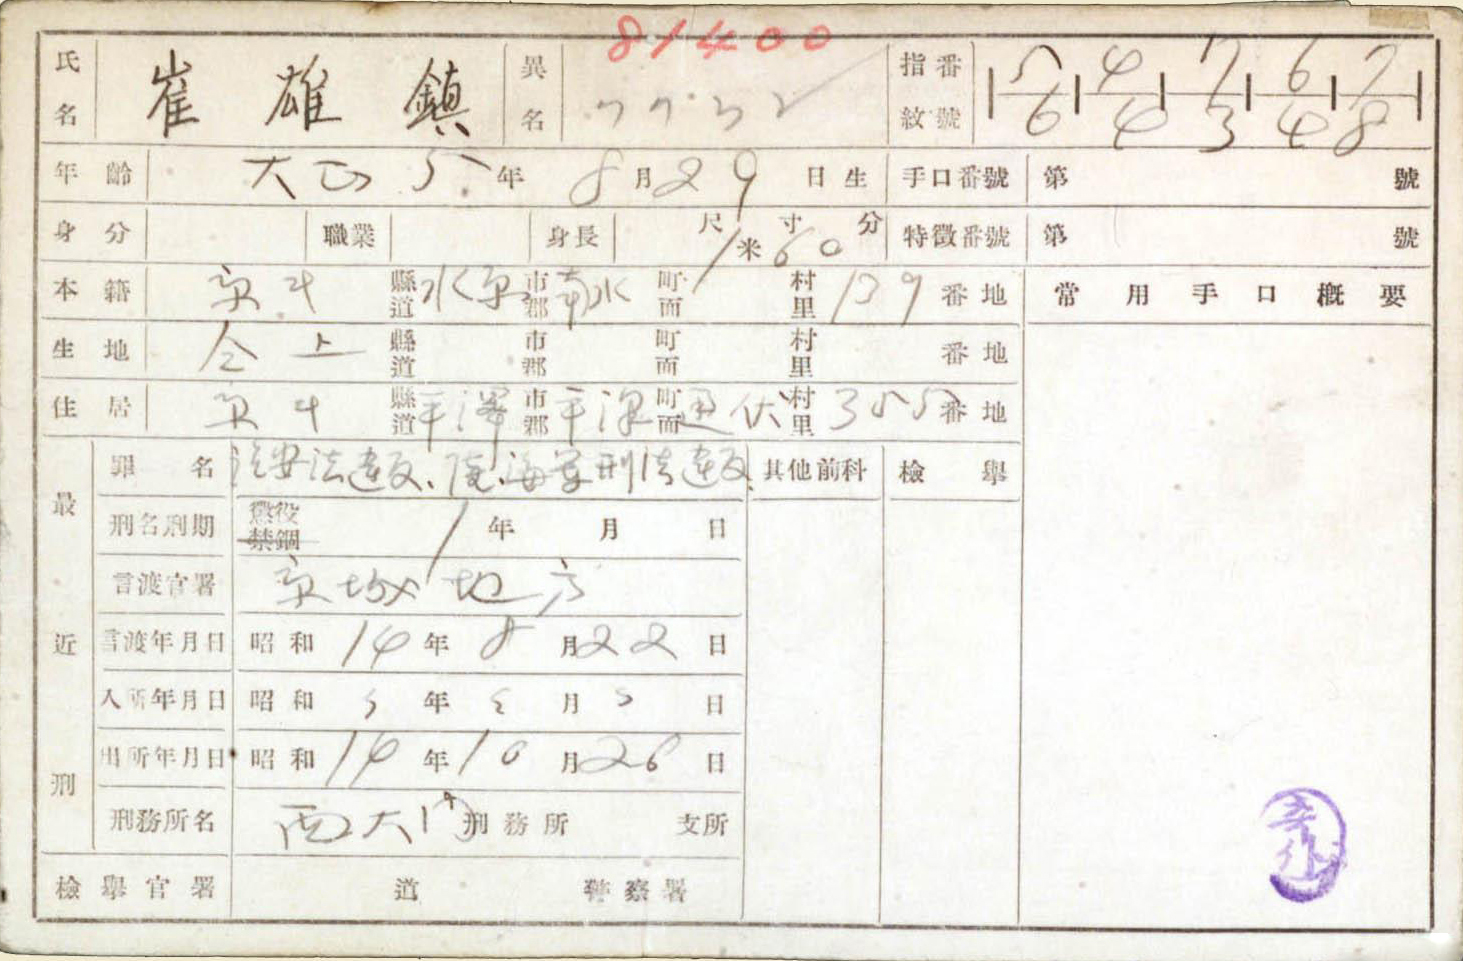 81400
氏名 崔雄鎮 異名 7732 指紋番號 5 4 7 6 7
6 4 3 4 8
年齡 大正 5年 8月29日生 手口番號 第 號
身分 職業 身長 尺 寸 分 1米60 特徵番號 第 號
本籍 京 縣道 水原 市郡 南水 町面 村里 139 番地 常用手口概要
生地 仝上 縣道 市郡 町面 村里 番地
住居 京 縣道 平澤 市郡 平澤 町面 通伏 村里 355 番地
最近刑 罪名 治安法違反、陸、海軍刑法違反、 其他前科 檢舉
刑名刑期 懲役 禁錮 1年 月 日
言渡官署 京城地方
言渡年月日 昭和 14年 8月22日
入所年月日 昭和 年 月 日
出所年月日 昭和 14年10月26日
刑務所名 西大門 刑務所 支所
檢舉官署 道 警察署